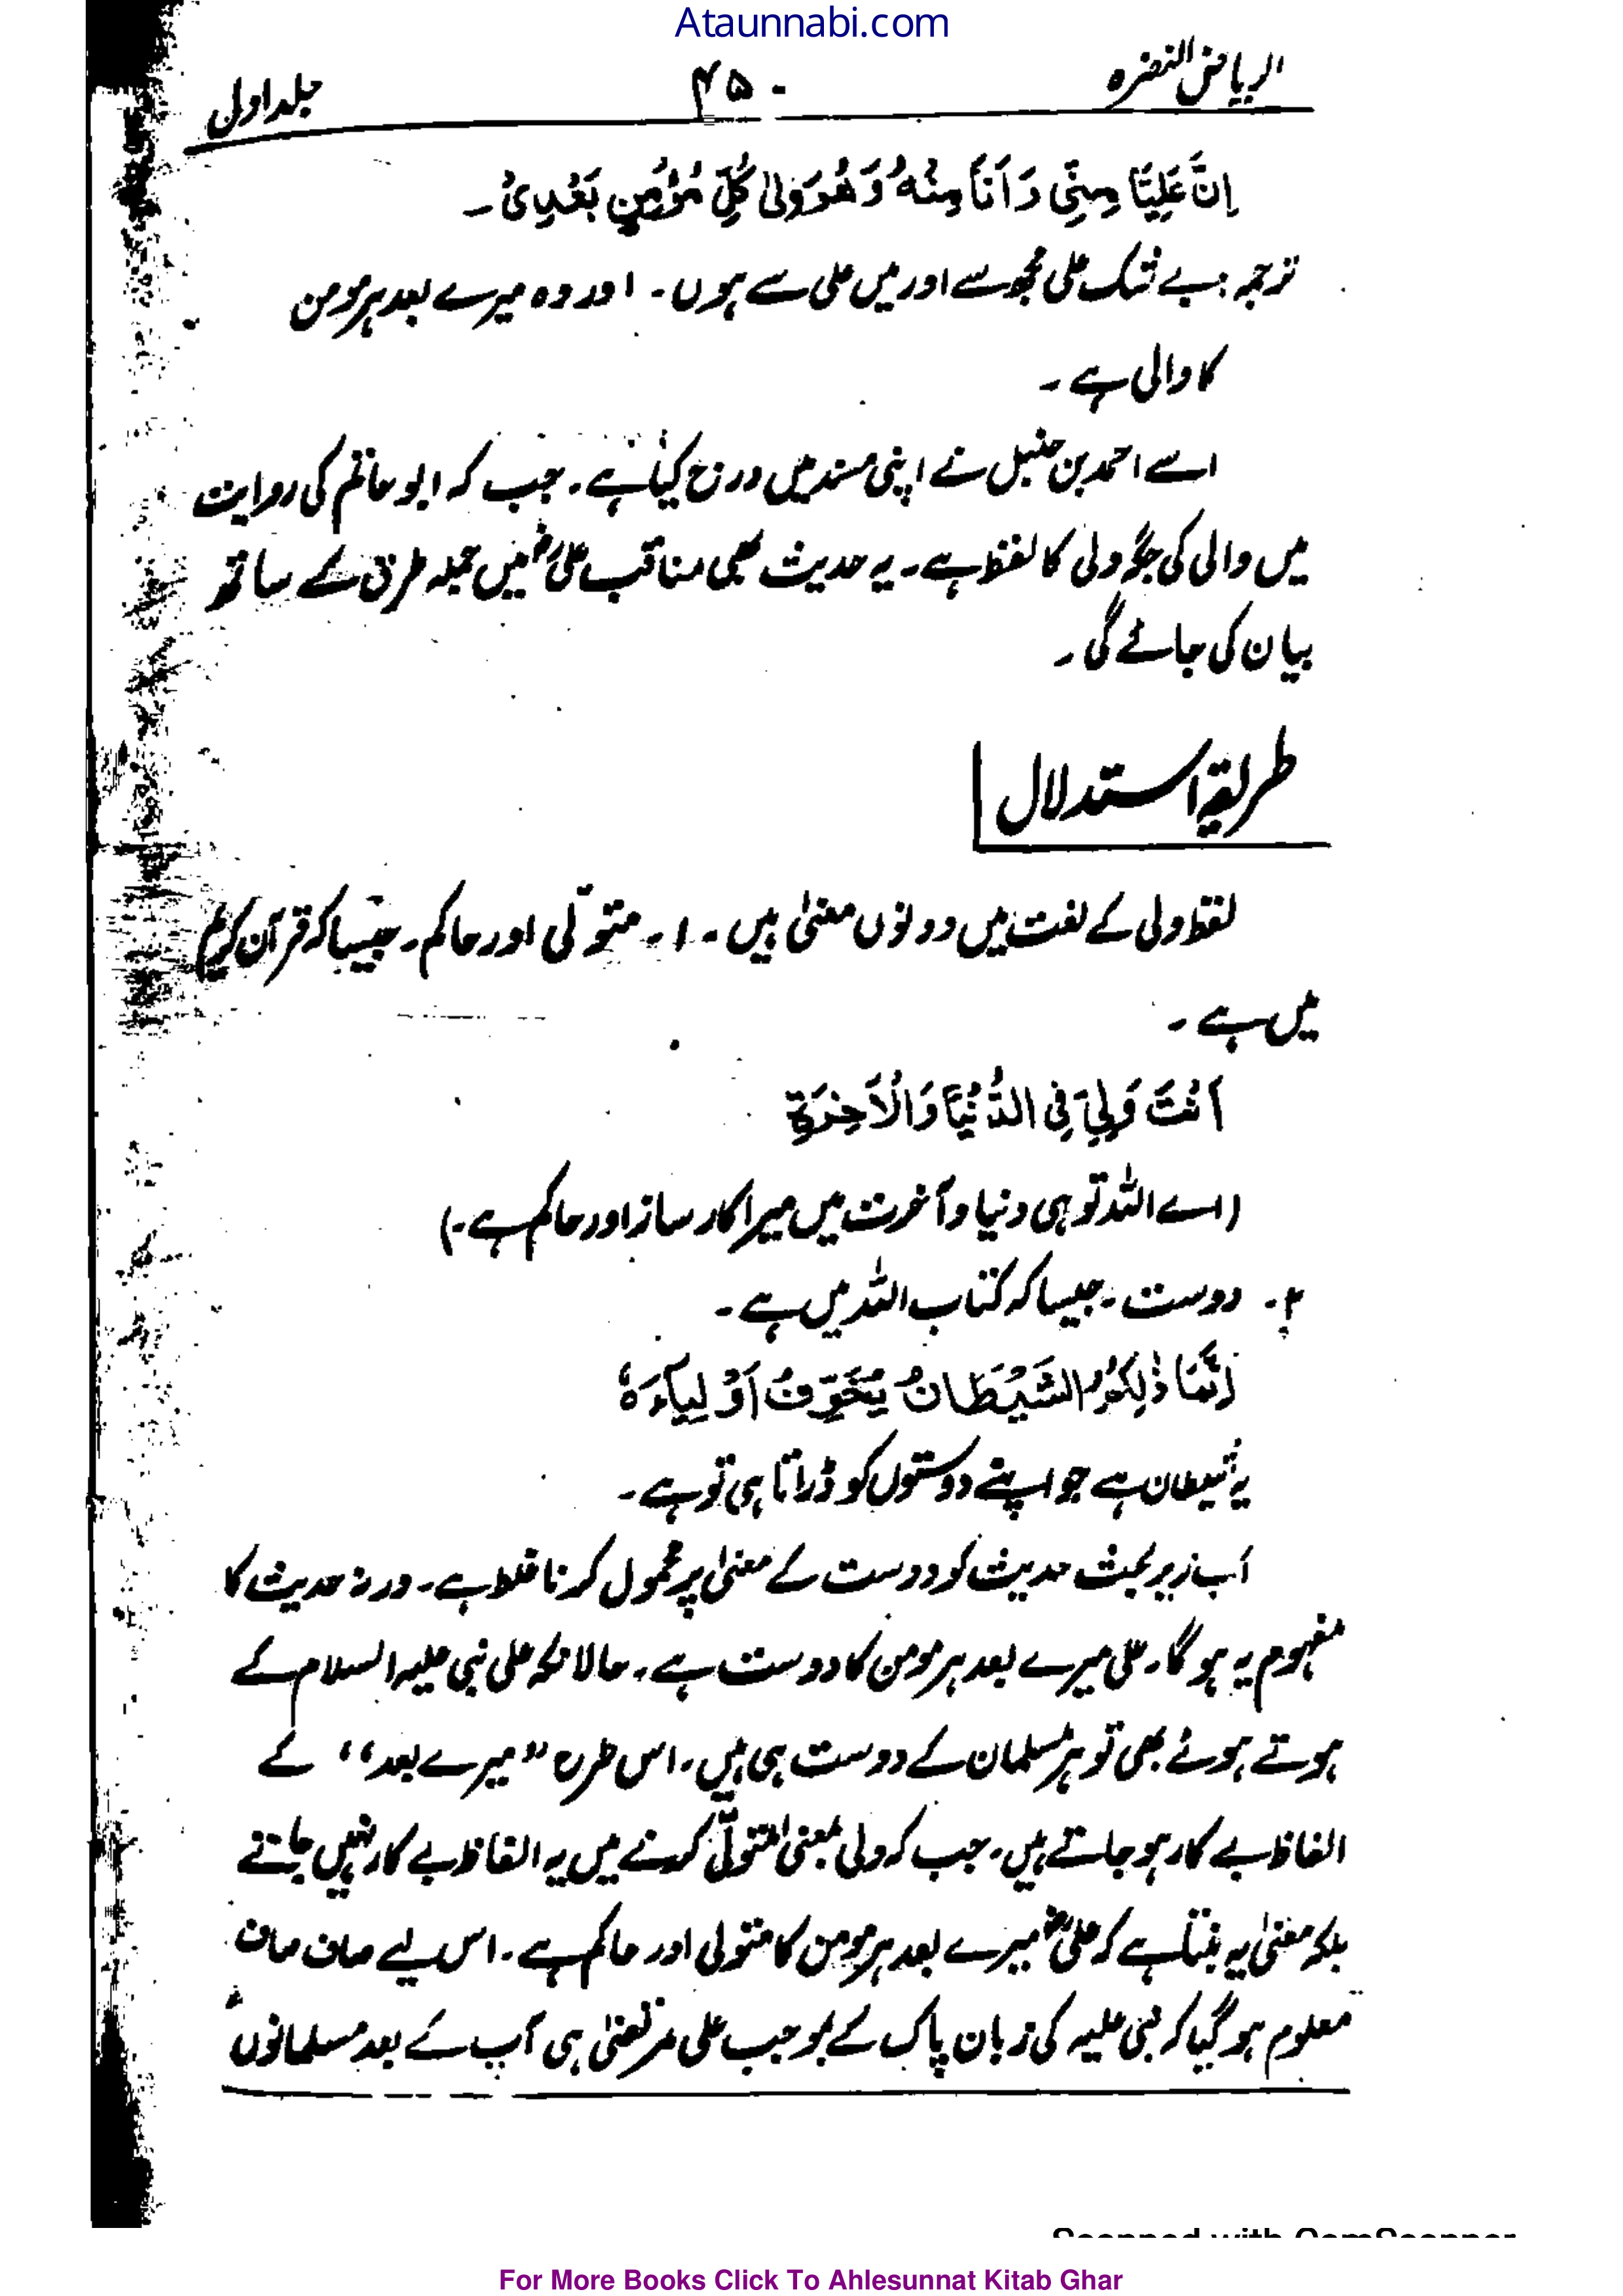 Ataunnabi.com
الریاض النضرہ ۴۵۰ جلد اول
اِنَّ عَلِیًّا مِنِّیْ وَ اَنَا مِنْهُ وَ هُوَ وَلِیُّ كُلِّ مُؤْمِنٍ بَعْدِیْ۔
ترجمہ: بے شک علی مجھ سے اور میں علی سے ہوں۔ اور وہ میرے بعد ہر مومن
کا والی ہے۔
اسے احمد بن حنبل نے اپنی مسند میں درج کیا ہے۔ جب کہ ابو حاتم کی روایت
میں والی کی جگہ ولی کا لفظ ہے۔ یہ حدیث بھی مناقب علیؓ میں جملہ طرق کے ساتھ
بیان کی جائے گی۔
طریقۂ استدلال
لفظ ولی کے لغت میں دونوں معنیٰ ہیں۔ ۱۔ متولّی اور حاکم۔ جیسا کہ قرآن کریم
میں ہے۔
اَنْتَ وَلِیّٖ فِی الدُّنْیَا وَالْاٰخِرَةِ
(اے اللہ تو ہی دنیا و آخرت میں میرا کارساز اور حاکم ہے۔)
۲۔ دوست۔ جیسا کہ کتاب اللہ میں ہے۔
اِنَّمَا ذٰلِكُمُ الشَّیْطَانُ یُخَوِّفُ اَوْلِیَآءَہٗ
یہ شیطان ہے جو اپنے دوستوں کو ڈراتا ہی تو ہے۔
اب زیر بحث حدیث کو دوست کے معنیٰ پر محمول کرنا غلط ہے۔ ورنہ حدیث کا
مفہوم یہ ہو گا۔ علی میرے بعد ہر مومن کا دوست ہے۔ حالانکہ علی نبی علیہ السلام کے
ہوتے ہوئے بھی تو ہر مسلمان کے دوست ہی ہیں۔ اس طرح ”میرے بعد“ کے
الفاظ بے کار ہو جاتے ہیں۔ جب کہ ولی بمعنیٰ متولّی کرنے میں یہ الفاظ بے کار نہیں جاتے
بلکہ معنیٰ یہ بنتا ہے کہ علیؓ میرے بعد ہر مومن کا متولی اور حاکم ہے۔ اس لیے صاف صاف
معلوم ہو گیا کہ نبی علیہ کی زبان پاک کے بموجب علی مرتضیٰ ہی آپ کے بعد مسلمانوں
Scanned with CamScanner
For More Books Click To Ahlesunnat Kitab Ghar